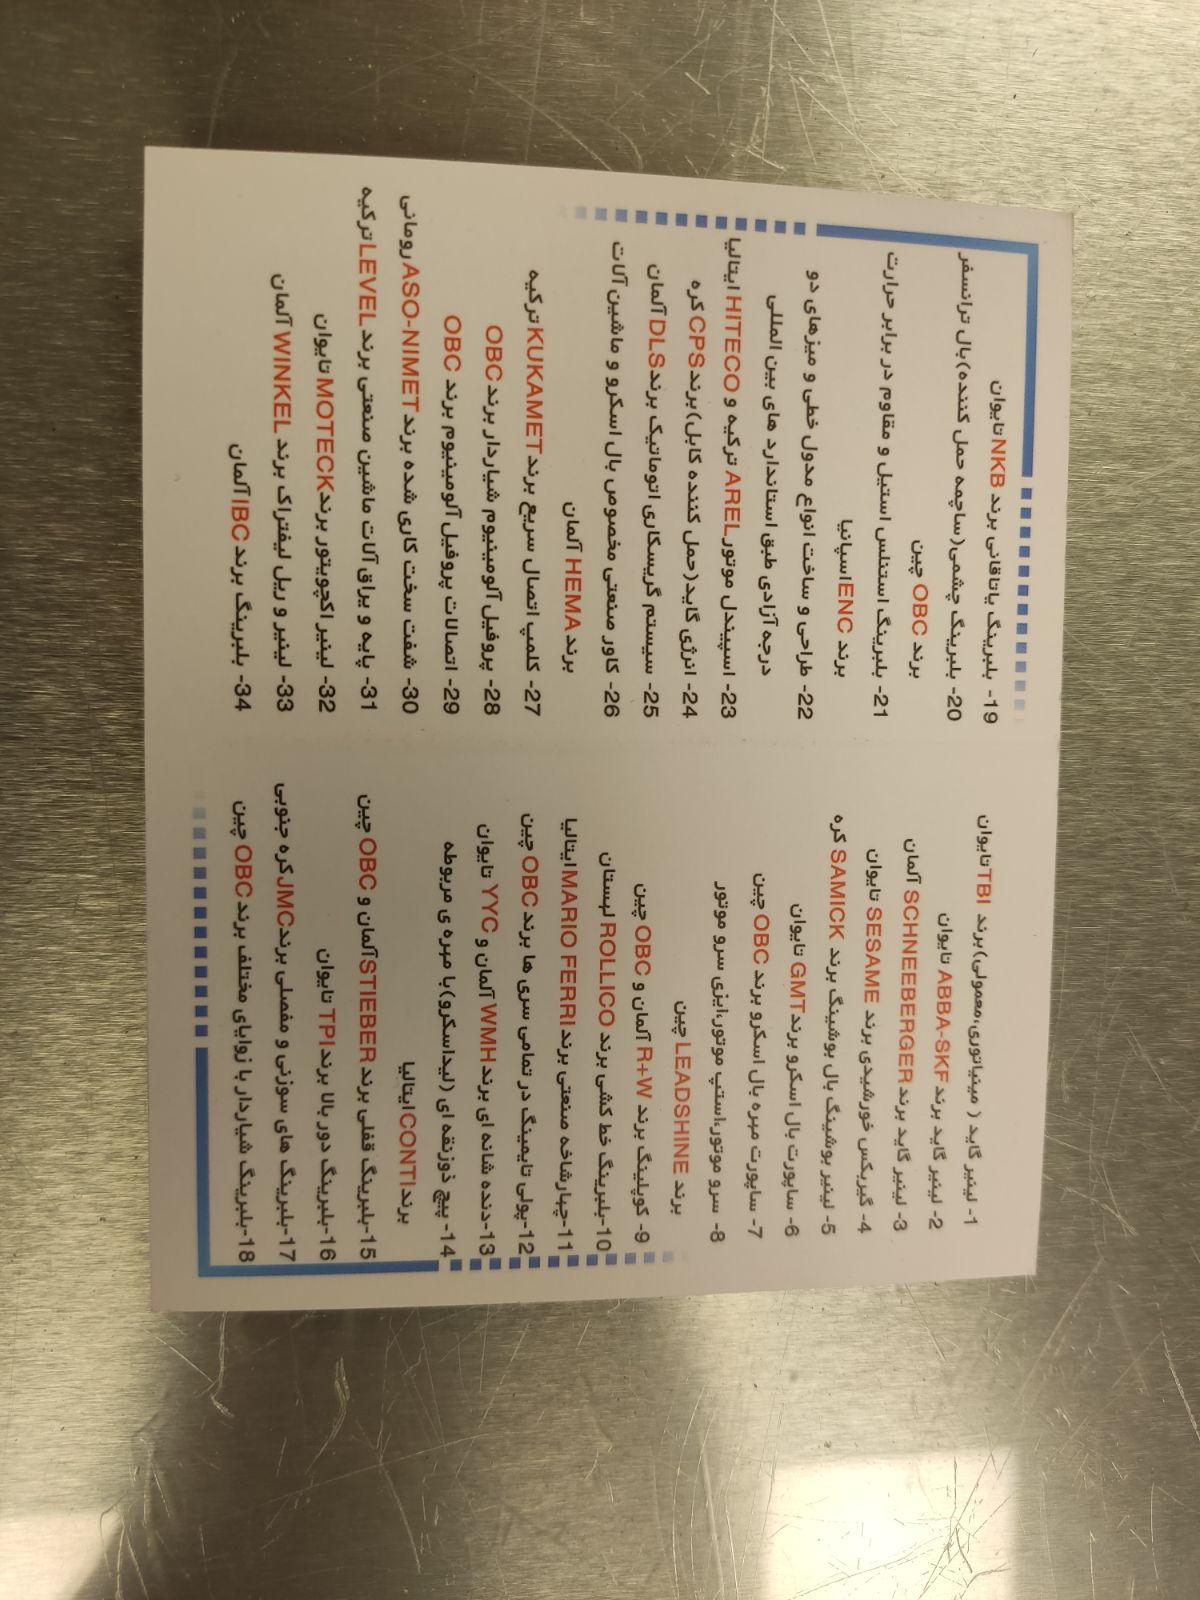 1- لینیر گاید ( مینیاتوری،معمولی)برند TBI تایوان
2- لینیر گاید برند ABBA-SKF تایوان
3- لینیر گاید برند SCHNEEBERGER آلمان
4- گیربکس خورشیدی برند SESAME تایوان
5- لینیر بوشینگ بال بوشینگ برند SAMICK کره
6- ساپورت بال اسکرو برند GMT تایوان
7- ساپورت مهره بال اسکرو برند OBC چین
8- سرو موتور،استپ موتور،ایزی سرو موتور
برند LEADSHINE چین
9- کوپلینگ برند R+W آلمان و OBC چین
10-بلبرینگ خط کشی برند ROLLICO لهستان
11-چهارشاخه صنعتی برند MARIO FERRI ایتالیا
12-پولی تایمینگ در تمامی سری ها برند OBC چین
13-دنده شانه ای برند WMH آلمان و YYC تایوان
14-پیچ ذوزنقه ای (لیداسکرو)با مهره ی مربوطه
برند CONTI ایتالیا
15-بلبرینگ قفلی برند STIEBER آلمان و OBC چین
16-بلبرینگ دور بالا برند TPI تایوان
17-بلبرینگ های سوزنی و مفصلی برند JMC کره جنوبی
18-بلبرینگ شیاردار با زوایای مختلف برند OBC چین
19- بلبرینگ یاتاقانی برند NKB تایوان
20- بلبرینگ چشمی(ساچمه حمل کننده)بال ترانسفر
برند OBC چین
21- بلبرینگ استنلس استیل و مقاوم در برابر حرارت
برند ENC اسپانیا
22- طراحی و ساخت انواع مدول خطی و میزهای دو
درجه آزادی طبق استاندارد های بین المللی
23- اسپیندل موتور AREL ترکیه و HITECO ایتالیا
24- انرژی گاید(حمل کننده کابل)برند CPS کره
25- سیستم گریسکاری اتوماتیک برند DLS آلمان
26- کاور صنعتی مخصوص بال اسکرو و ماشین آلات
برند HEMA آلمان
27- کلمپ اتصال سریع برند KUKAMET ترکیه
28- پروفیل آلومینیوم شیاردار برند OBC
29- اتصالات پروفیل آلومینیوم برند OBC
30- شفت سخت کاری شده برند ASO-NIMET رومانی
31- پایه و یراق آلات ماشین صنعتی برند LEVEL ترکیه
32- لینیر اکچویتور برند MOTECK تایوان
33- لینیر و ریل لیفتراک برند WINKEL آلمان
34- بلبرینگ برند IBC آلمان